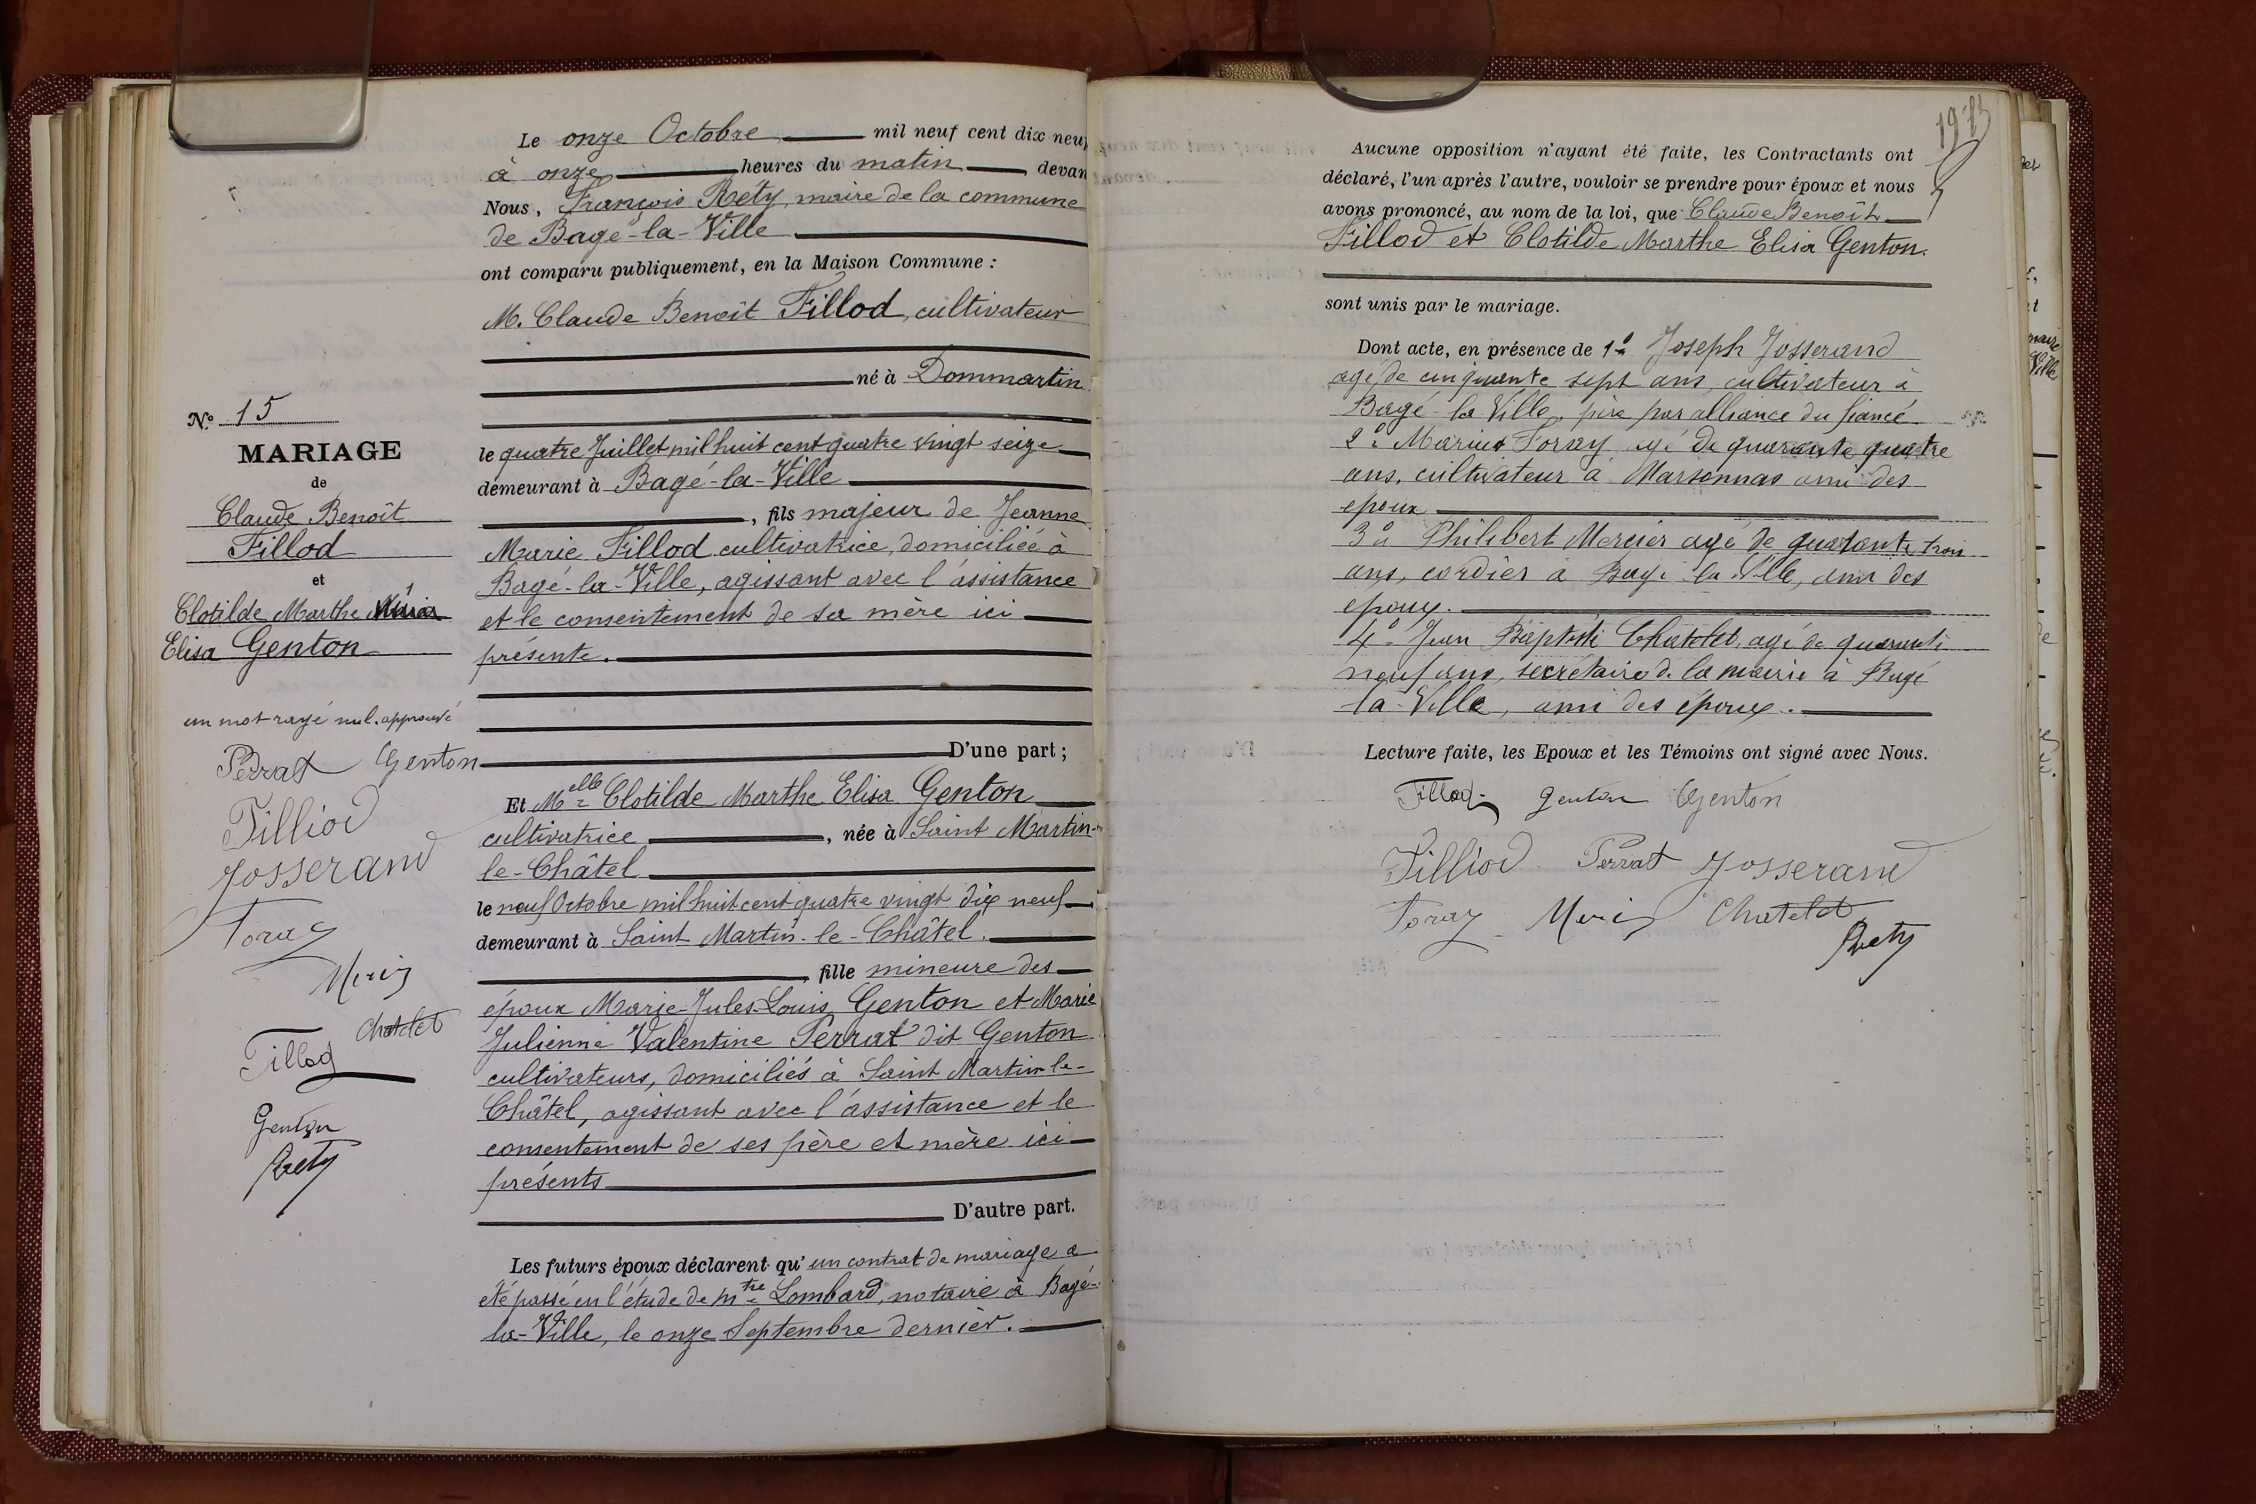 Le onze Octobre mil neuf cent dix neuf
à onze heures du matin devan
Nous, François Réty, maire de la commune
de Bagé-la-Ville
ont comparu publiquement, en la Maison Commune :
M. Claude Benoît Fillod, cultivateur
né à Dommartin
le quatre Juillet mil huit cent quatre vingt seize
demeurant à Bagé-la-Ville
, fils majeur de Jeanne
Marie Fillod cultivatrice, domiciliée à
Bagé-la-Ville, agissant avec l'assistance
et le consentement de sa mère ici
présente.
D'une part ;
Et Melle Clotilde Marthe Elisa Genton
cultivatrice, née à Saint Martin-
le-Châtel
le neuf Octobre mil huit cent quatre vingt dix neuf
demeurant à Saint Martin-le-Châtel.
, fille mineure des
époux Marie-Jules-Louis Genton et Marie
Julienne Valentine Perrat dit Genton
cultivateurs, domiciliés à Saint Martin-le-
Châtel, agissant avec l'assistance et le
consentement de ses père et mère ici
présents
D'autre part.
Les futurs époux déclarent qu'un contrat de mariage a
été passé en l'étude de Mtre Lombard, notaire à Bagé-
la-Ville, le onze Septembre dernier.
No 15
MARIAGE
de
Claude Benoît
Fillod
et
Clotilde Marthe
Elisa Genton
un mot rayé nul. approuvé
Perrat Genton
Filliod
Josserand
Foray
Chatelet
Fillod
Genton
Réty
Aucune opposition n'ayant été faite, les Contractants ont
déclaré, l'un après l'autre, vouloir se prendre pour époux et nous
avons prononcé, au nom de la loi, que Claude Benoît
Fillod et Clotilde Marthe Elisa Genton.
sont unis par le mariage.
Dont acte, en présence de 1o Joseph Josserand
agé de cinquante sept ans, cultivateur à
Bagé-la Ville, père par alliance du fiancé
2o Marius Foray agé de quarante quatre
ans, cultivateur à Marsonnas ami des
epoux
3o Philibert Mercier agé de quarante trois
ans, cordier à Bagé-la-Ville, ami des
epoux.
4o Jean Baptiste Chatelet, agé de quarante
neuf ans, secrétaire de la mairie à Bagé
la-Ville, ami des époux.
Lecture faite, les Epoux et les Témoins ont signé avec Nous.
Fillod Genton Genton
Filliod Perrat Josserand
Foray Chatelet
Réty